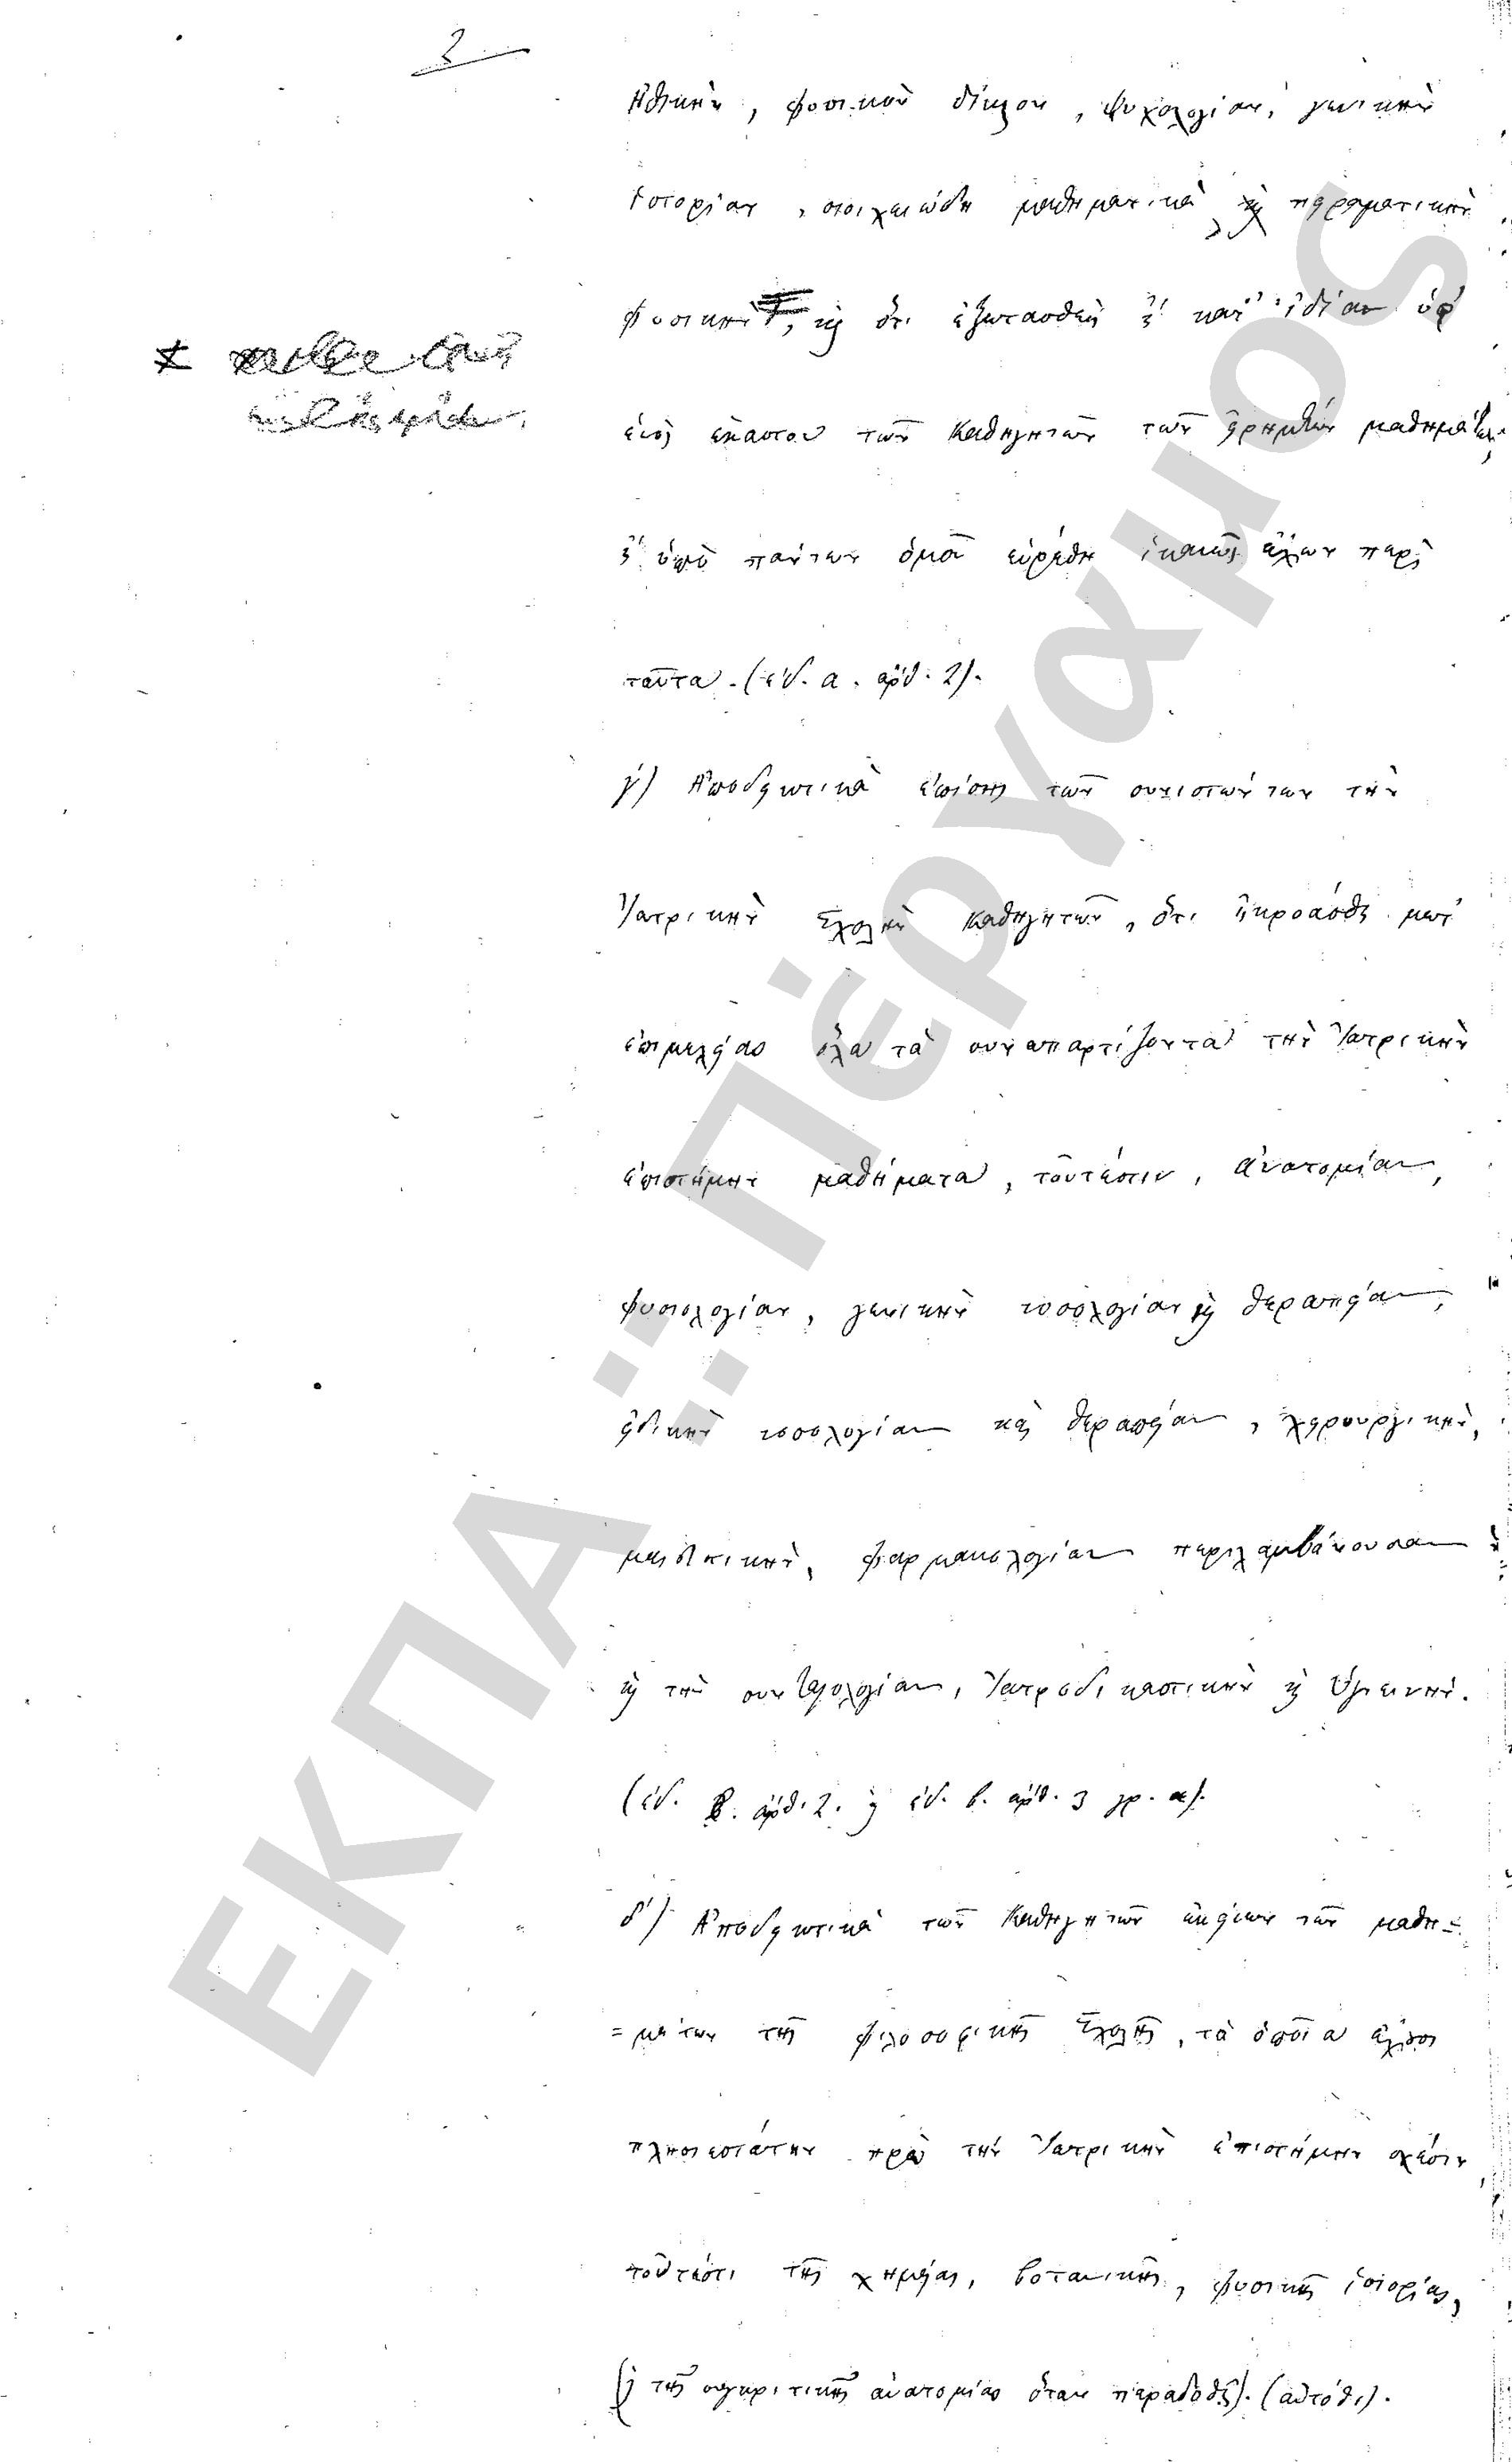 2
Ἠθικὴν, φυσικὸν δίκαιον, ψυχολογίαν, γενικὴν
ἱστορίαν, στοιχειώδη μαθηματικὰ, καὶ πειραματικὴν
φυσικὴν, καὶ ὅτι ἐξετασθεὶς καὶ κατ' ἰδίαν ὑφ'
ἑνὸς ἑκάστου τῶν Καθηγητῶν τῶν εἰρημένων μαθημάτων,
καὶ ὑπὸ πάντων ὁμοῦ εὑρέθη ἱκανῶς ἔχων περὶ
ταῦτα. (ἐδ. α. ἀρθ. 2).
γ) Ἀποδεικτικὰ ἐπίσης τῶν συνιστώντων τὴν
Ἰατρικὴν Σχολὴν Καθηγητῶν, ὅτι ἠκροάσθη μετ'
ἐπιμελείας ὅλα τὰ συναπαρτίζοντα τὴν Ἰατρικὴν
ἐπιστήμην μαθήματα, τουτέστιν, ἀνατομίαν,
φυσιολογίαν, γενικὴν νοσολογίαν καὶ θεραπείαν,
εἰδικὴν νοσολογίαν καὶ θεραπείαν, χειρουργικὴν,
μαιευτικὴν, φαρμακολογίαν περιλαμβάνουσαν
καὶ τὴν συνταγολογίαν, Ἰατροδικαστικὴν καὶ Ὑγιεινήν.
(ἐδ. β. ἀρθ. 2. καὶ ἐδ. β. ἀρθ. 3 γρ. α).
δ') Ἀποδεικτικὰ τῶν Καθηγητῶν ἐκείνων τῶν μαθη=
=μάτων τῆς φιλοσοφικῆς Σχολῆς, τὰ ὁποῖα ἔχουσι
πλησιεστάτην πρὸς τὴν Ἰατρικὴν ἐπιστήμην σχέσιν,
τουτέστι τῆς χημείας, βοτανικῆς, φυσικῆς ἱστορίας,
(καὶ τῆς συγκριτικῆς ἀνατομίας ὅταν παραδοθῇ). (αὐτόθι).
ΕΚΠΑ :: Πέργαμος